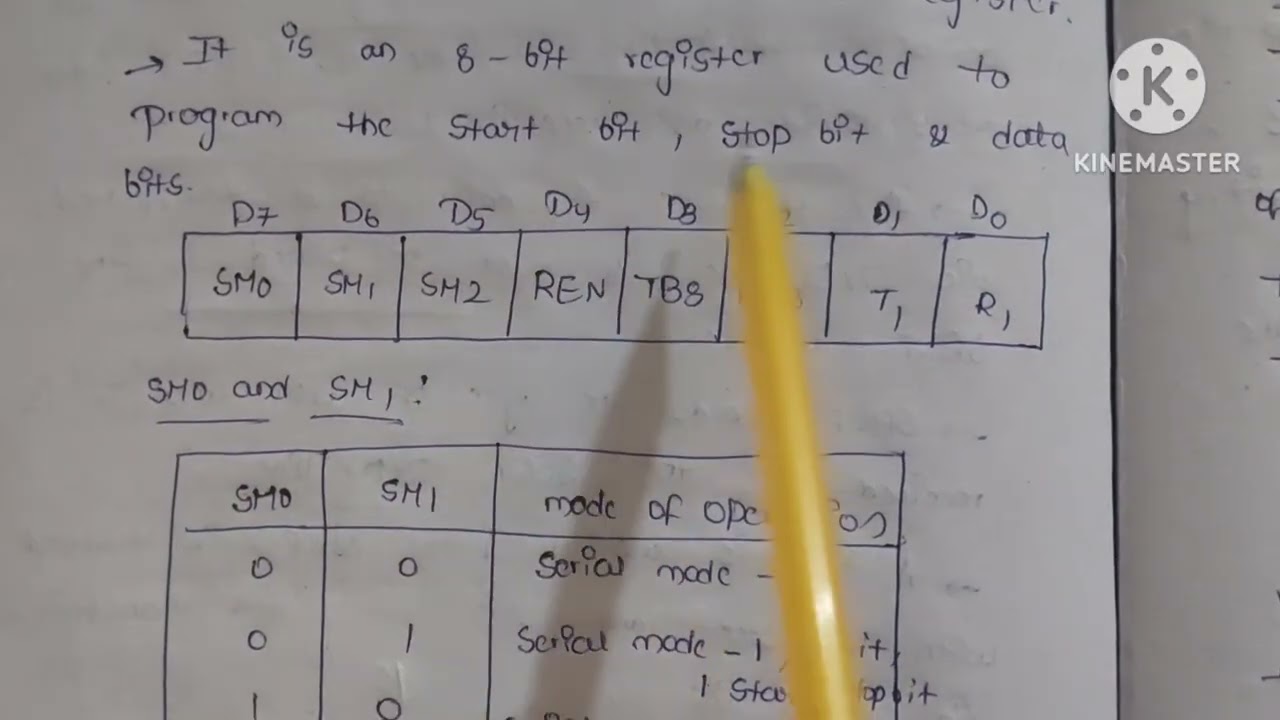 → It is an 8-bit register used to
program the start bit, stop bit & data
bits.
D7 D6 D5 D4 D3 D1 D0
SM0 SM1 SM2 REN TB8 T1 R1
SM0 and SM1:
SM0 SM1 mode of
0 0 Serial mode -
0 1 Serial mode - 1
1
1 0
K
KINEMASTER